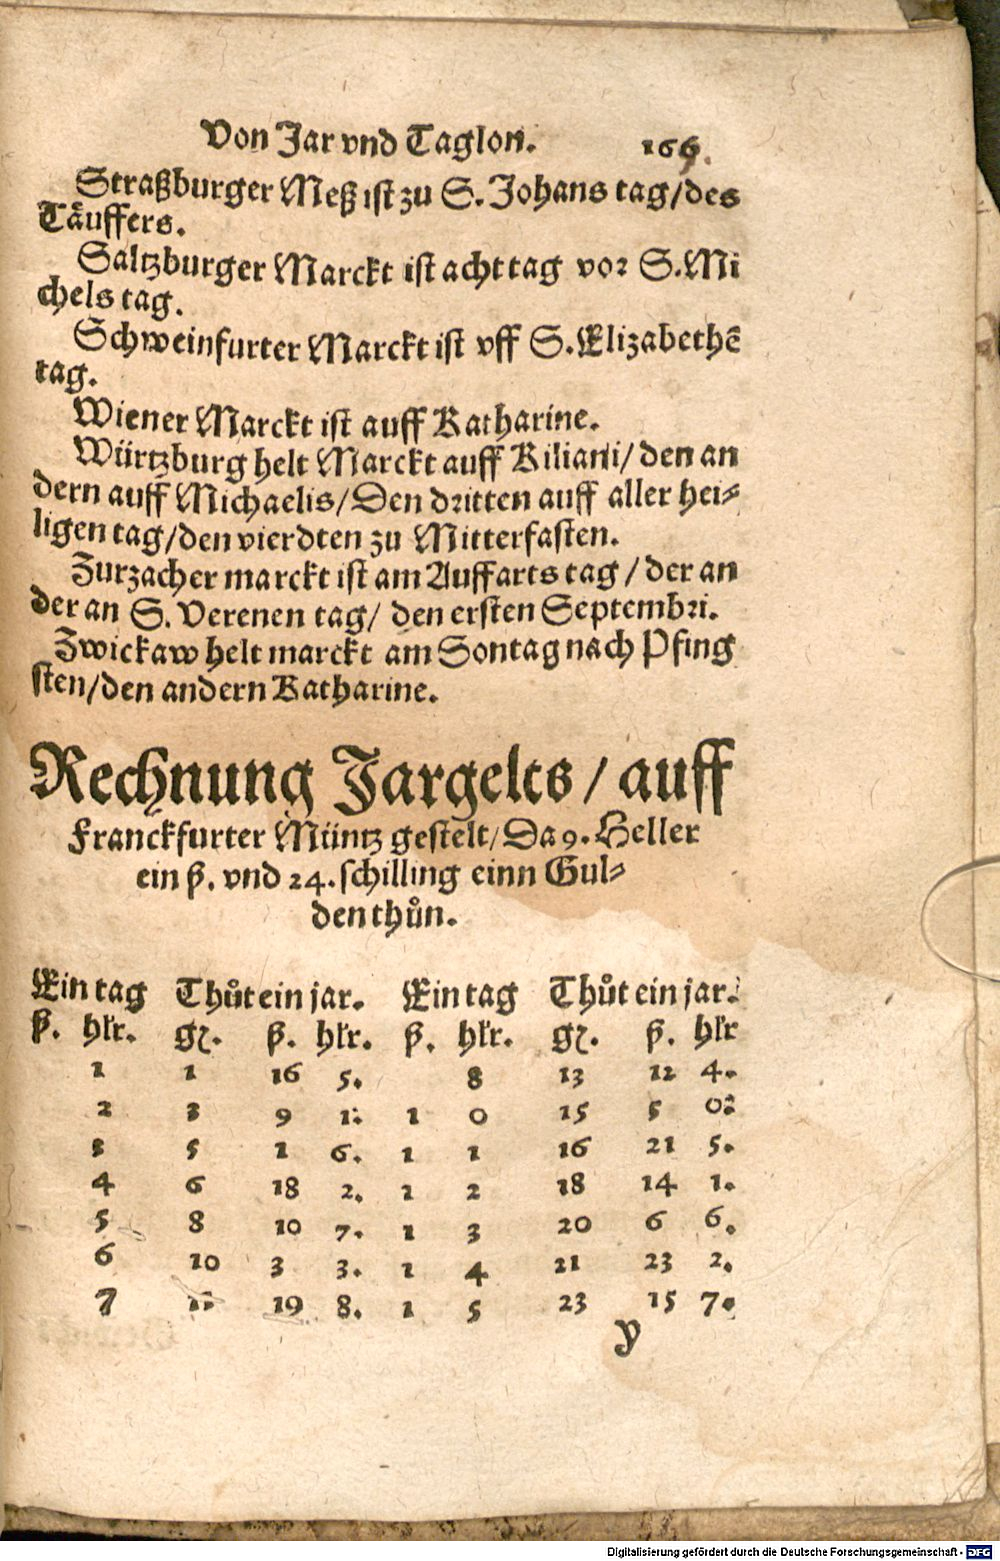 Von Jar vnd Taglon. 169.
Straßburger Meß ist zu S. Johans tag/des
Taͤuffers.
Saltzburger Marckt ist acht tag vor S. Mi
chels tag.
Schweinfurter Marckt ist vff S. Elizabethẽ
tag.
Wiener Marckt ist auff Katharine.
Würtzburg helt Marckt auff Kiliani/ den an
dern auff Michaelis/Den dritten auff aller hei-
ligen tag/den vierdten zu Mitterfasten.
Zurzacher marckt ist am Auffarts tag / der an
der an S. Verenen tag/ den ersten Septembri.
Zwickaw helt marckt am Sontag nach Pfing
sten/den andern Katharine.
Rechnung Jargelts / auff
Franckfurter Müntz gestelt/Da 9. Heller
ein ß. vnd 24. schilling einn Gul-
den thůn.
Ein tag Thůt ein jar. Ein tag Thůt ein jar.
ß. hlr. gl. ß. hlr. ß. hlr. gl. ß. hlr
1 1 16 5. 8 13 12 4.
2 3 9 1. 1 0 15 5 0.
3 5 1 6. 1 1 16 21 5.
4 6 18 2. 1 2 18 14 1.
5 8 10 7. 1 3 20 6 6.
6 10 3 3. 1 4 21 23 2.
7 11 19 8. 1 5 23 15 7.
y
Digitalisierung gefördert durch die Deutsche Forschungsgemeinschaft - DFG